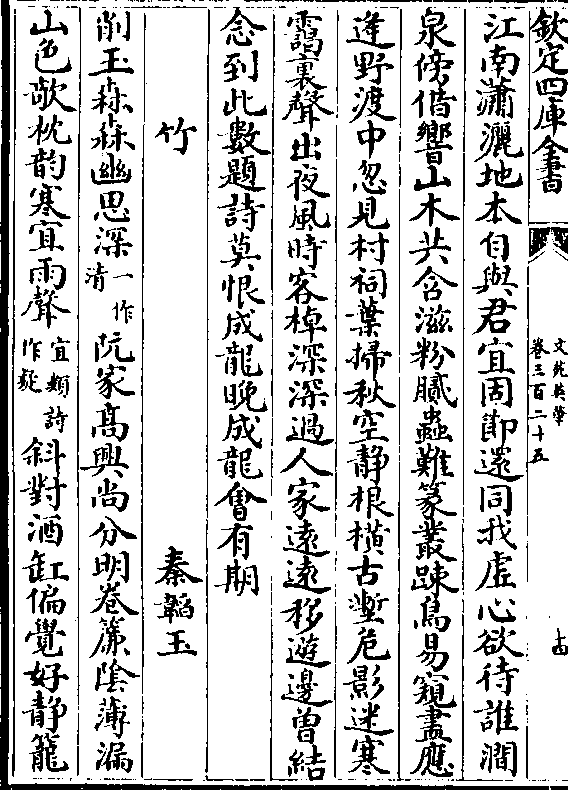 欽定四庫全書
文苑英華
卷三百二十五
十五
江南瀟灑地本自與君宜固節還同我虛心欲待誰澗
泉傍借響山木共含滋粉膩蟲難篆叢踈鳥易窺盡應
逢野渡中忽見村祠葉掃秋空静根橫古塹危影迷寒
靄裏聲出夜風時客棹深深過人家遠遠移遊邊曾結
念到此數題詩莫恨成龍晚成龍㑹有期
竹 秦韜玉
削玉森森幽思深一作清阮家髙興尚分明卷簾隂薄漏
山色欹枕韵寒宜雨聲宜類詩作疑斜對酒缸偏覺好静籠